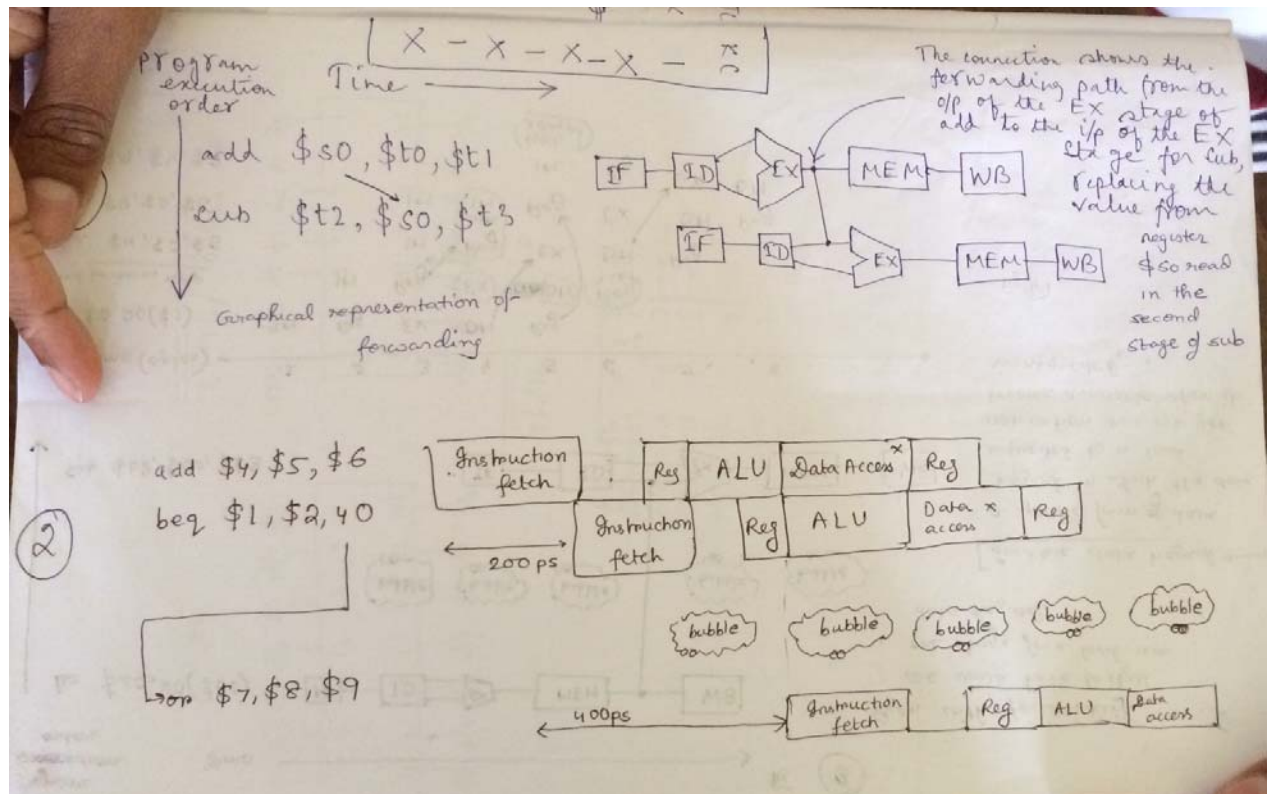 X - X - X - X -
program
execution
order
Time
add $s0, $t0, $t1
sub $t2, $s0, $t3
Graphical representation of
forwarding
IF ID EX MEM WB
IF ID EX MEM WB
The connection shows the
forwarding path from the
o/p of the EX stage of
add to the i/p of the EX
stage for sub,
replacing the
value from
register
$s0 read
in the
second
stage of sub
2
add $4, $5, $6
beq $1, $2, 40
or $7, $8, $9
Instruction
fetch
Reg ALU Data Access x Reg
200 ps
Instruction
fetch
Reg ALU Data x
access
Reg
bubble bubble bubble bubble bubble
400ps
Instruction
fetch
Reg ALU Data
access